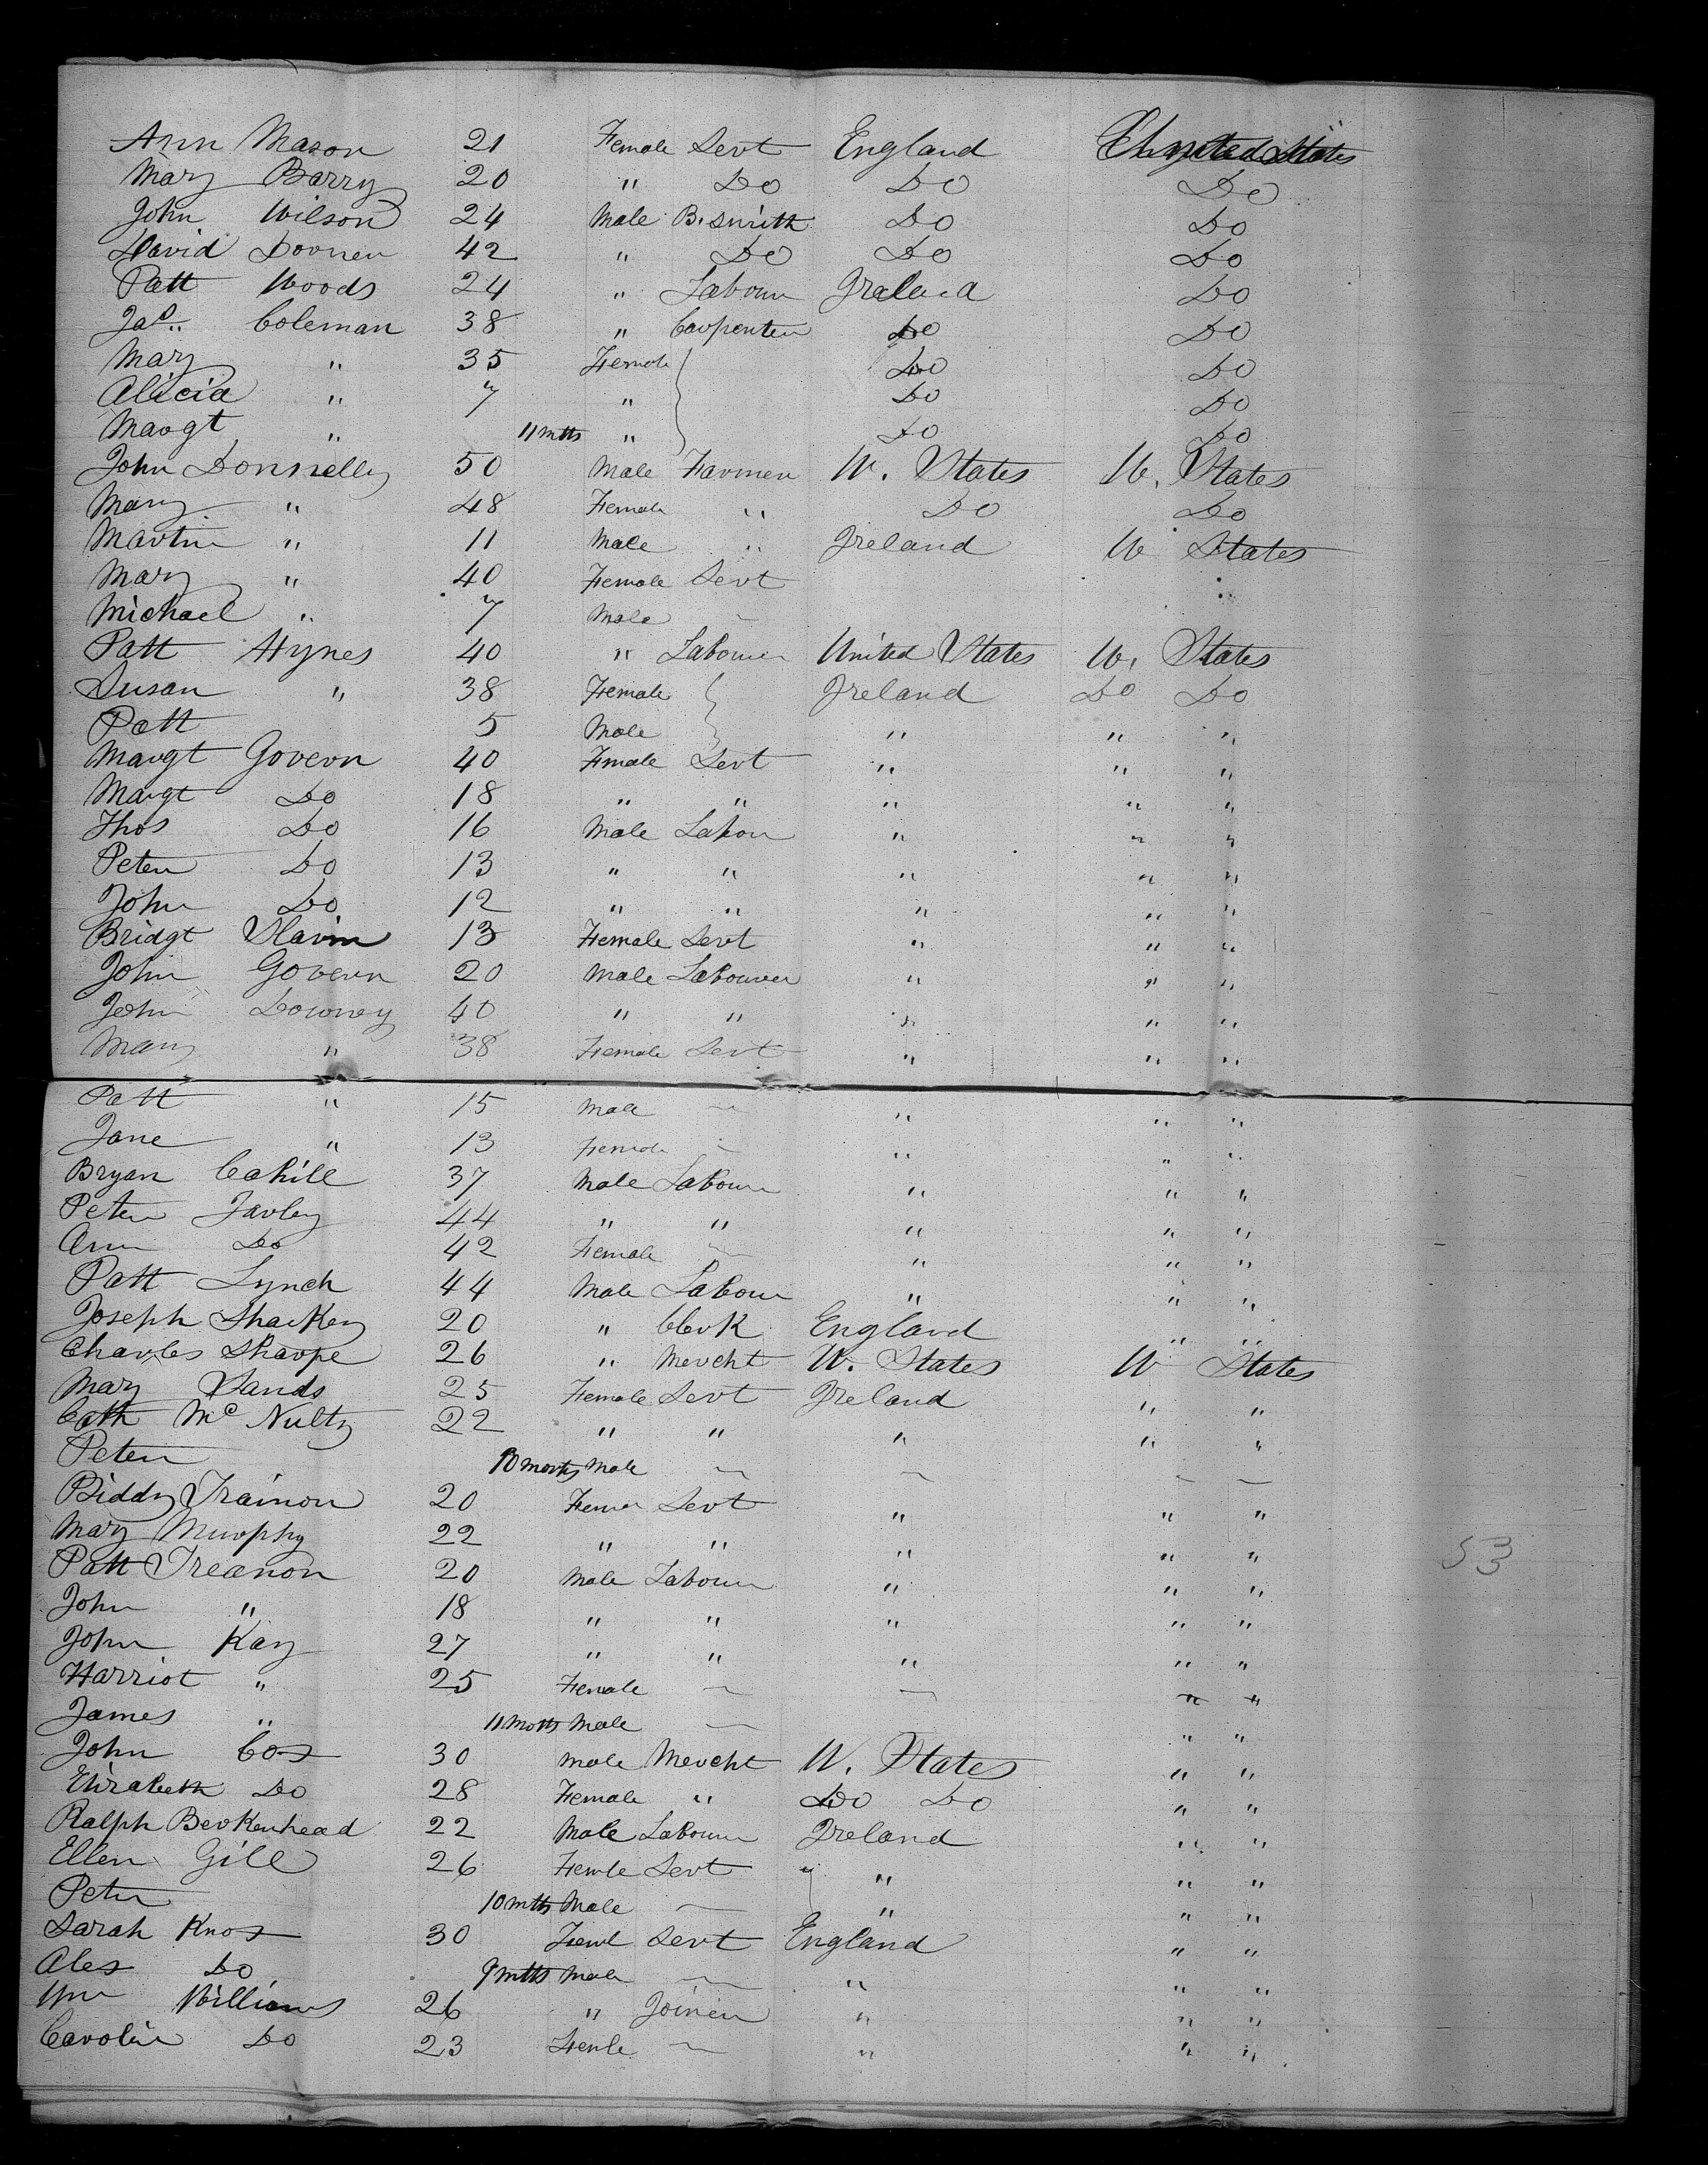 Ann Mason 21 Female Servt England United States
Mary Barry 20 " Do Do Do
John Wilson 24 Male B. Smith Do Do
David Dovnen 42 " Do Do Do
Patt Woods 24 " Labour Ireland Do
Jas Coleman 38 " Carpenter Do Do
Mary " 35 Female Do Do
Alicia " 7 " Do Do
Margt " 11 mths " Do Do
John Donnelly 50 Male Farmer U. States U. States
Mary " 48 Female " Do Do
Martin " 11 Male " Ireland U States
Mary " 40 Female Servt
Michael " 7 Male
Patt Hynes 40 " Labourer United States U. States
Susan " 38 Female Ireland Do Do
Patt 5 Male " " "
Margt Govern 40 Fmale Servt " " "
Margt Do 18 " " " " "
Thos Do 16 Male Labour " " "
Peter Do 13 " " " " "
John Do 12 " " " " "
Bridgt Slavin 13 Female Servt " " "
John Govern 20 Male Labourer " " "
John Downey 40 " " " " "
Mary " 38 Female Servt " " "
Patt " 15 Male — " " "
Jane " 13 Female — " " "
Bryan Cahill 37 Male Labour " " "
Peter Farley 44 " " " " "
Ann Do 42 Female — " " "
Patt Lynch 44 Male Labour " " "
Joseph Sharkey 20 " Clerk England " "
Charles Sharpe 26 " Mercht U. States U States
Mary Sands 25 Female Servt Ireland " "
Cath McNulty 22 " " " " "
Peter 10 months Male — — — —
Biddy Trainor 20 Femer Servt " " "
Mary Murphy 22 " " " " "
Patt Treanor 20 Male Labour " " "
53
John " 18 " " " " "
John Kay 27 " " " " "
Harriot " 25 Female — — " "
James " 11 moths Male — " "
John Cox 30 Male Mercht U. States " "
Elizabeth Do 28 Female " Do Do " "
Ralph Berkenhead 22 Male Labour Ireland " "
Ellen Gill 26 Femle Servt " " "
Peter 10 mths Male — " " "
Sarah Knox 30 Feml Servt England " "
Alex Do 9 mths Male — " " "
Wm Williams 26 " Joiner " " "
Carolin Do 23 Femle — " " "